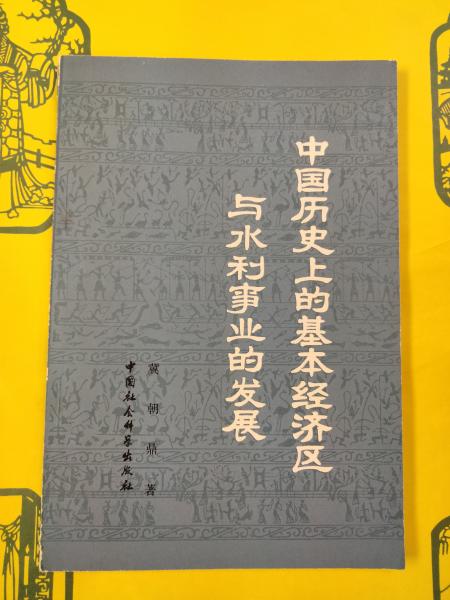 中国历史上的基本经济区
与水利事业的发展
冀朝鼎 著
中国社会科学出版社